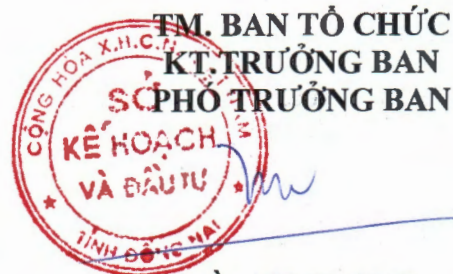 TM. BAN TỔ CHỨC
KT.TRƯỞNG BAN
PHÓ TRƯỞNG BAN
CỘNG HÒA X.H.C.N VIỆT NAM
SỞ
KẾ HOẠCH
VÀ ĐẦU TƯ
TỈNH ĐỒNG NAI